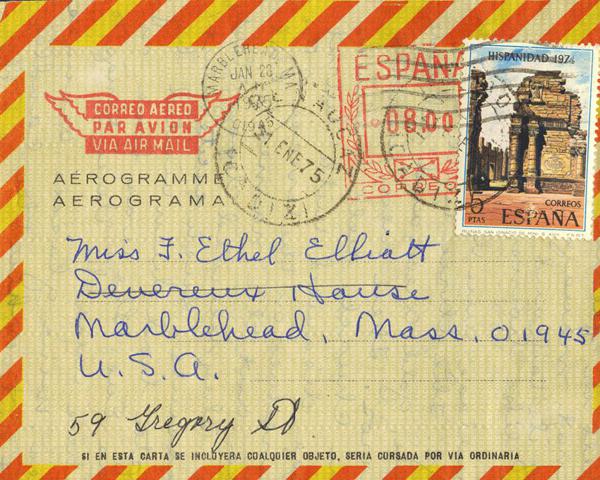 CORREO AEREO
PAR AVION
VIA AIR MAIL
AÉROGRAMME
AEROGRAMA
MARBLEHEAD, MA
JAN 28
1975
01945
ENE 75
CADIZ
ESPAÑA
08.00
CORREOS
HISPANIDAD 1974
CORREOS
5 PTAS ESPAÑA
Miss F. Ethel Elliott
Devereux House
Marblehead, Mass. 01945
U.S.A.
59 Gregory St
SI EN ESTA CARTA SE INCLUYERA CUALQUIER OBJETO, SERIA CURSADA POR VIA ORDINARIA